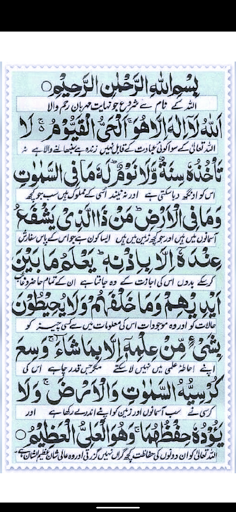 بِسْمِ اللهِ الرَّحْمٰنِ الرَّحِيْمِ ○
اللہ کے نام سے شروع جو نہایت مہربان رحم والا
اَللهُ لَاۤ اِلٰهَ اِلَّا هُوَ ۚ اَلْحَیُّ الْقَیُّوْمُ ۚ لَا
اللہ تعالیٰ کے سوا کوئی عبادت کے قابل نہیں زندہ ہے سنبھالنے والا ہے نہ
تَاْخُذُهٗ سِنَةٌ وَّلَا نَوْمٌ ؕ لَهٗ مَا فِی السَّمٰوٰتِ
اس کو اونگھ دبا سکتی ہے اور نہ نیند اسی کے مملوک ہیں سب جو کچھ
وَمَا فِی الْاَرْضِ ؕ مَنْ ذَا الَّذِیْ یَشْفَعُ
آسمانوں میں ہیں اور جو کچھ زمین میں ہیں ایسا کون ہے جو اس کے پاس سفارش
عِنْدَهٗۤ اِلَّا بِاِذْنِهٖ ؕ یَعْلَمُ مَا بَیْنَ
کر سکے بدوں اس کی اجازت کے وہ جانتا ہے ان کے تمام حاضر و غائب
اَیْدِیْهِمْ وَمَا خَلْفَهُمْ ۚ وَلَا یُحِیْطُوْنَ
حالات کو اور وہ موجودات اس کی معلومات میں سے کسی چیز کو
بِشَیْءٍ مِّنْ عِلْمِهٖۤ اِلَّا بِمَا شَآءَ ۚ وَسِعَ
اپنے احاطہ علمی میں نہیں لا سکتے مگر جس قدر چاہے اس کی
كُرْسِیُّهُ السَّمٰوٰتِ وَالْاَرْضَ ۚ وَلَا
کرسی نے سب آسمانوں اور زمین کو اپنے اندر لے رکھا ہے اور
یَـُٔوْدُهٗ حِفْظُهُمَا ۚ وَهُوَ الْعَلِیُّ الْعَظِیْمُ ○
اللہ تعالیٰ کو ان دونوں کی حفاظت کچھ گراں نہیں گزرتی اور وہ عالی شان عظیم الشان ہے